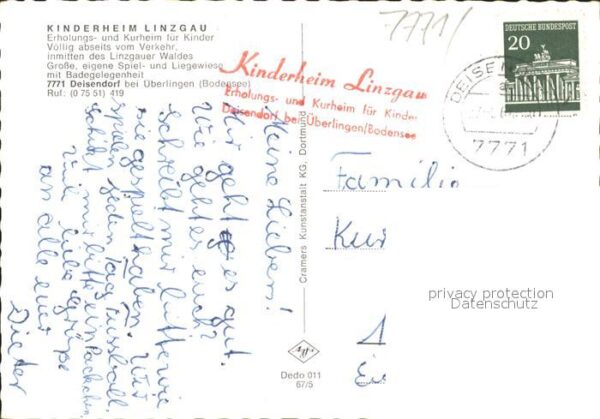 KINDERHEIM LINZGAU
Erholungs- und Kurheim für Kinder
Völlig abseits vom Verkehr,
inmitten des Linzgauer Waldes
Große, eigene Spiel- und Liegewiese
mit Badegelegenheit
7771 Deisendorf bei Überlingen (Bodensee)
Ruf: (0 75 51) 419
7771/
Kinderheim Linzgau
Erholungs- und Kurheim für Kinder
Deisendorf bei Überlingen/Bodensee
DEUTSCHE BUNDESPOST
20
DEISE
7771
Meine Lieben!
Mir geht es gut.
Wie geht es euch?
Schreibt mir bitte wie
sie gespielt haben. Wir
spielen jeden Tag Fussball
schikt mir bitte ein Päckchen
Viel liebe grüße
an alle euer
Dieter
Cramers Kunstanstalt KG, Dortmund
Dedo 011
67/5
Familie
Kur
1
privacy protection
Datenschutz